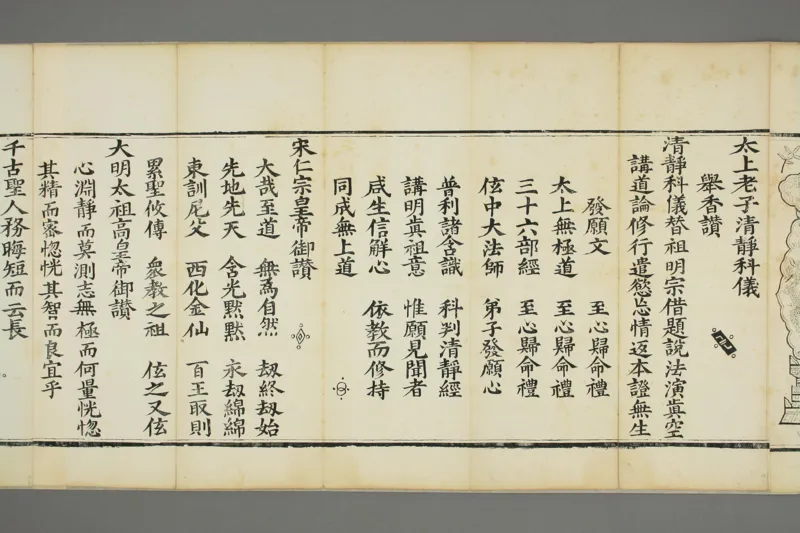 太上老子清靜科儀
舉香讚
清靜科儀替祖明宗借題說法演眞空
講道論修行遣慾忘情返本證無生
發願文　至心歸命禮
太上無極道　至心歸命禮
三十六部經　至心歸命禮
伭中大法師　弟子發願心
普利諸含識　科判清靜經
講明眞祖意　惟願見聞者
咸生信解心　依教而修持
同成無上道
宋仁宗皇帝御讚
大哉至道　無爲自然　劫終劫始
先地先天　含光默默　永劫綿綿
東訓尼父　西化金仙　百王取則
累聖攸傳　衆教之祖　伭之又伭
大明太祖高皇帝御讚
心淵靜而莫測志無極而何量恍惚
其精而密惚恍其智而良宜乎
千古聖人務晦短而云長